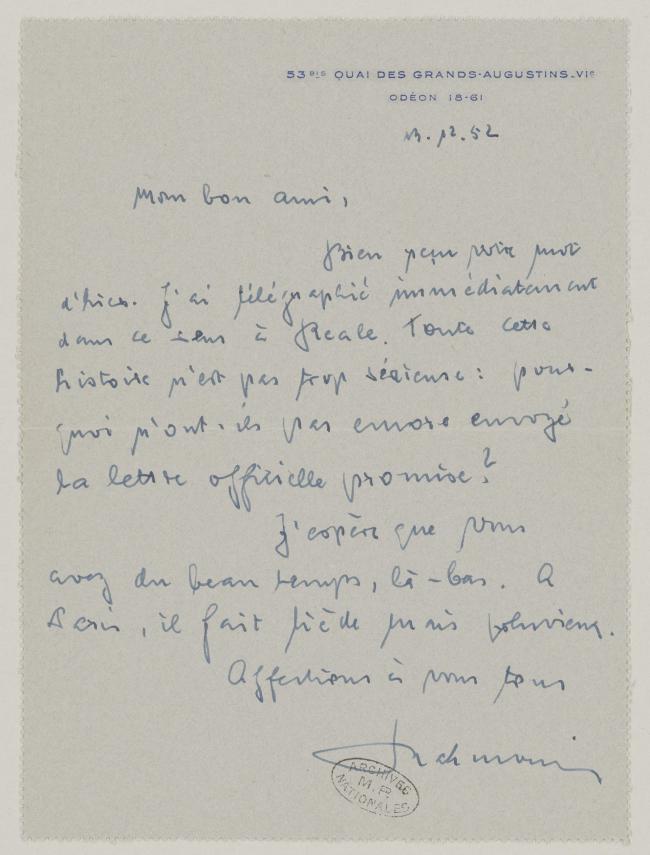 53 BIS QUAI DES GRANDS-AUGUSTINS_VIe
ODÉON 18-61
13.12.52
Mon bon ami,
Bien reçu votre mot
d'hier. J'ai télégraphié immédiatement
dans ce sens à Reale. Toute cette
histoire n'est pas trop sérieuse : pour-
quoi n'ont-ils pas encore envoyé
la lettre officielle promise ?
J'espère que vous
avez du beau temps, là-bas. A
Paris, il fait tiède mais pluvieux.
Affections à vous tous
ARCHIVES
M. P.
NATIONALES